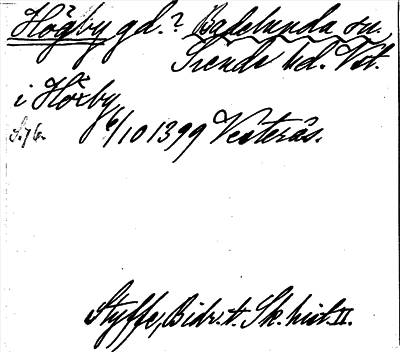 Högby gd.? Badelunda sn,
Siende hd. Vst.
i Høxby
S. 76. 6/10 1399 Vesterås.
Styffe, Bidr. t. Sk. hist. II.